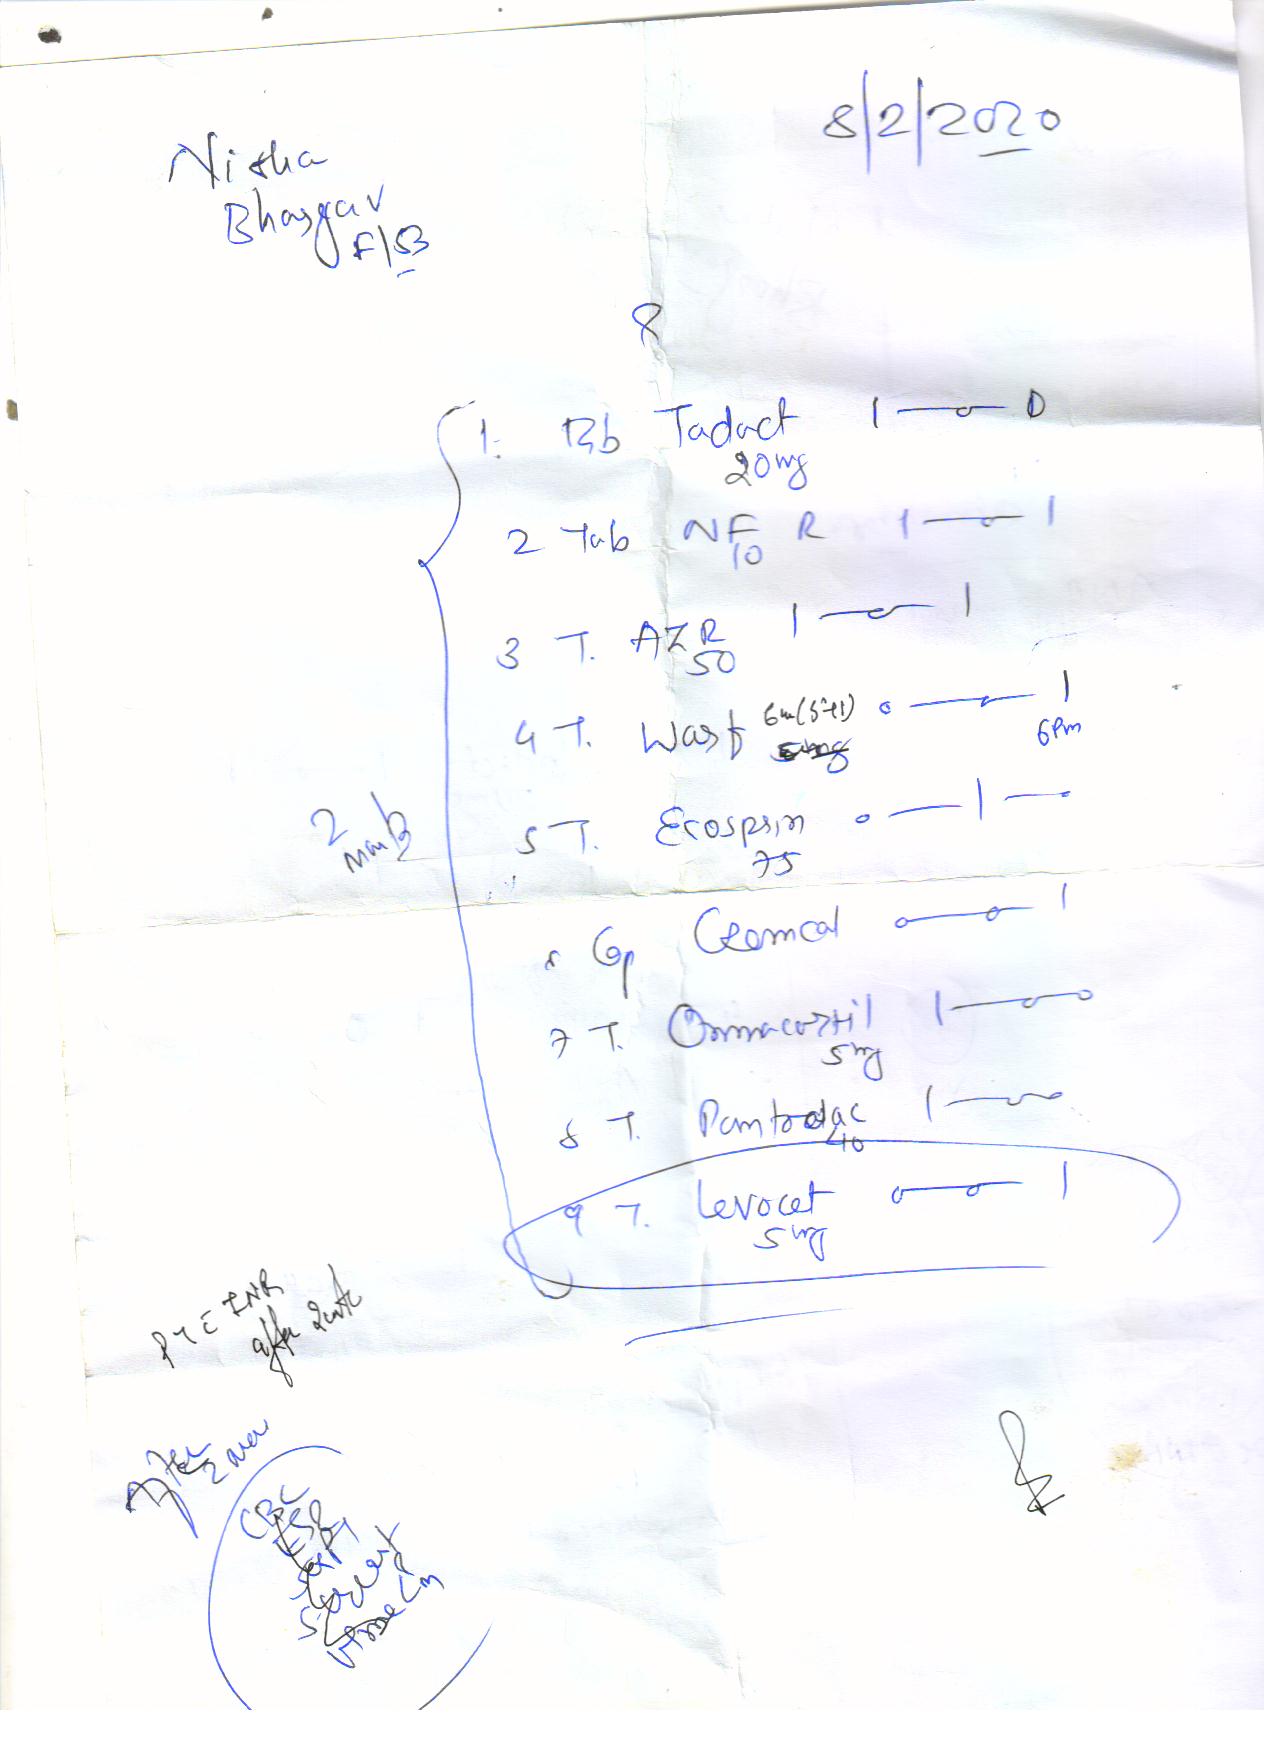 8/2/2020
Nisha
Bhargav
F/53
1. Tab Tadact 1 — o — 0
20mg
2 Tab NF R 1 — o — 1
10
3 T. AZR 1 — o — 1
50
4 T. Warf 6m(5+1) o — 1
5mg 6pm
5 T. Ecosprin o — 1 —
75
2 month
Cap Gemcal o — o — 1
7 T. Omnacortil 1 — o — o
5mg
8 T. Pantodac 1 — o — o
40
9 T. Levocet o — o — 1
5mg
PT C INR
after 2wk
After
2
CBC
ESR
SGPT
S creat
Urine